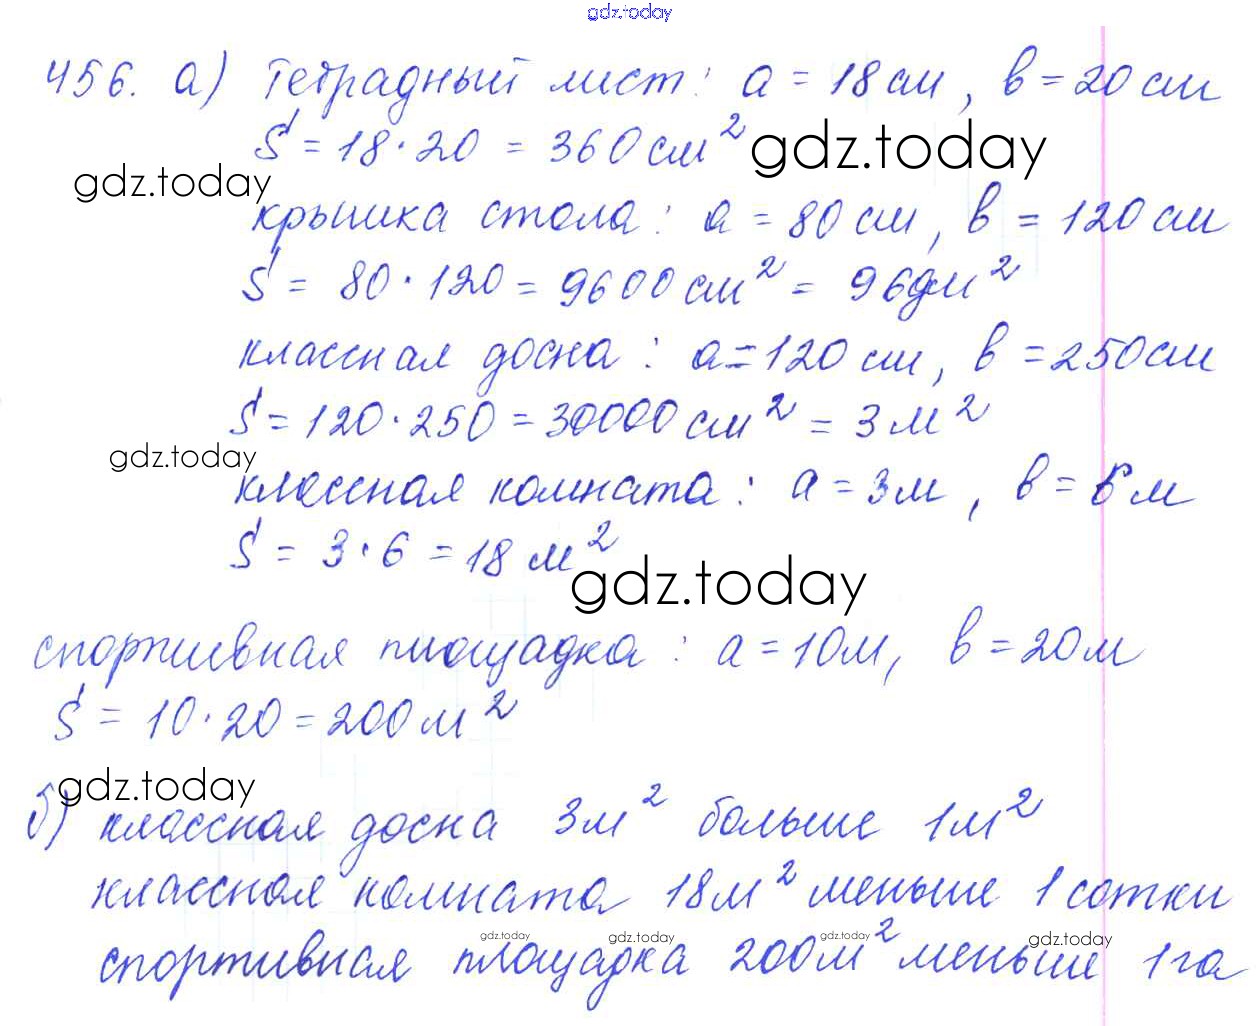 gdz.today
456. а) Тетрадный лист: a = 18 см, b = 20 см
S = 18 · 20 = 360 см² gdz.today
gdz.today
крышка стола: a = 80 см, b = 120 см
S = 80 · 120 = 9600 см² = 96 дм²
классная доска: a = 120 см, b = 250 см
S = 120 · 250 = 30000 см² = 3 м²
gdz.today
классная комната: a = 3 м, b = 6 м
S = 3 · 6 = 18 м²
gdz.today
спортивная площадка: a = 10 м, b = 20 м
S = 10 · 20 = 200 м²
gdz.today
б) классная доска 3 м² больше 1 м²
классная комната 18 м² меньше 1 сотки
gdz.today gdz.today gdz.today gdz.today
спортивная площадка 200 м² меньше 1 га